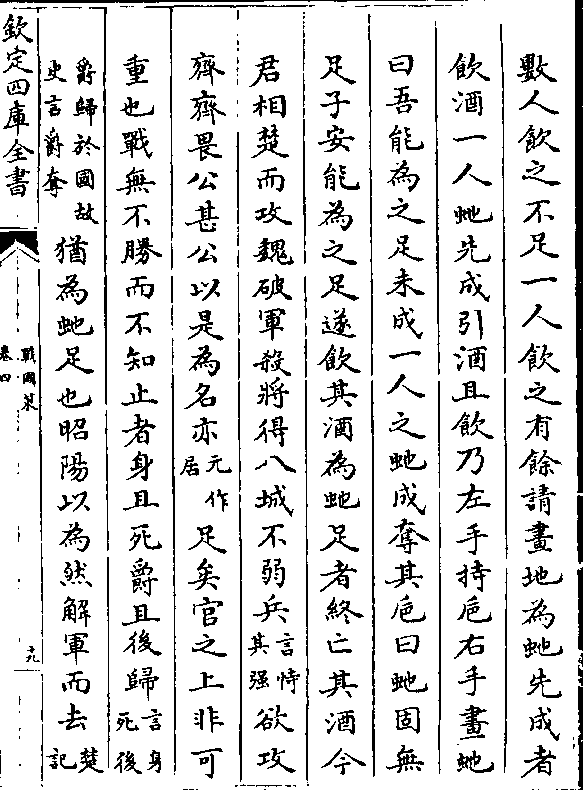 數人飲之不足一人飲之有餘請畫地為虵先成者
飲酒一人虵先成引酒且飲乃左手持巵右手畫虵
曰吾能為之足未成一人之虵成奪其巵曰虵固無
足子安能為之足遂飲其酒為虵足者終亡其酒今
君相楚而攻魏破軍殺將得八城不弱兵言恃其强欲攻
齊齊畏公甚公以是為名亦元作居足矣官之上非可
重也戰無不勝而不知止者身且死爵且後歸言身死後
爵歸於國故史言爵奪猶為虵足也昭陽以為然解軍而去楚記
欽定四庫全書
戰國策
卷四
十九